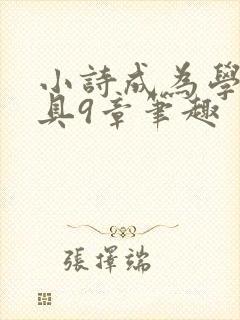 小詩成為學
具9章筆趣
張擇端